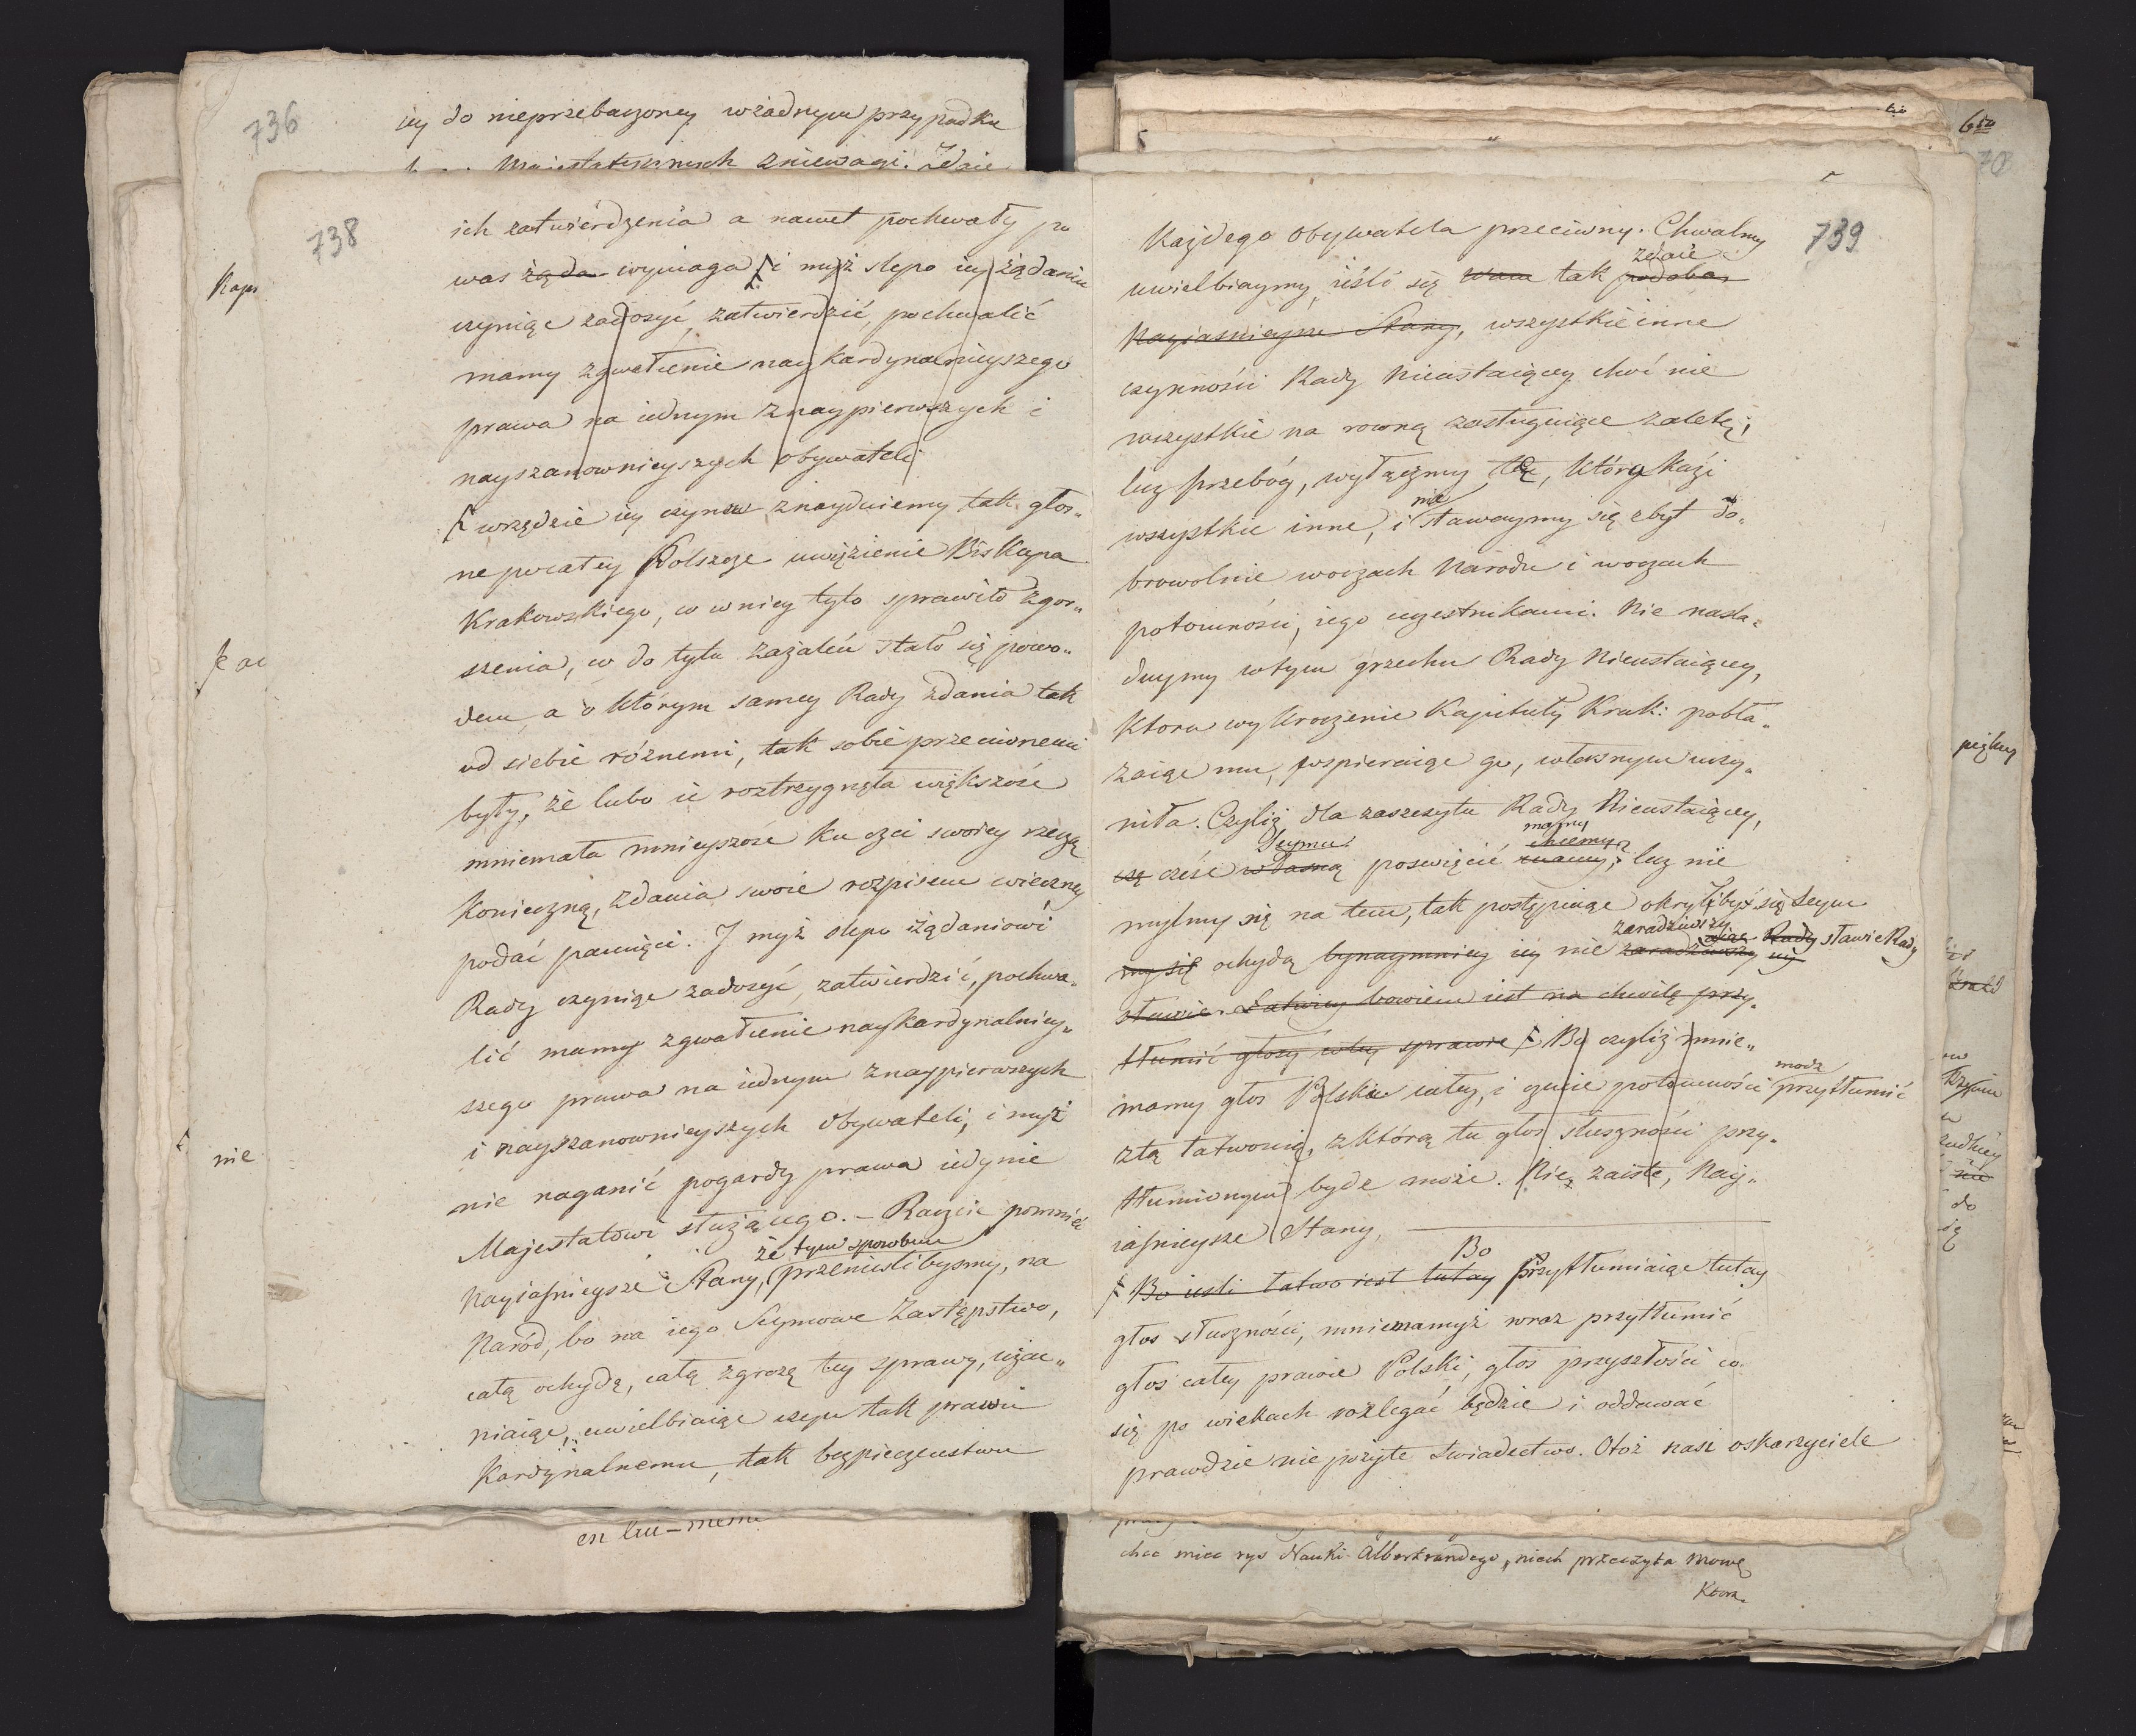 736
iey do nieprzebaczoney wżadnym przypadku
Majestatycznych zniewagi. Zdaie
738
ich zatwierdzenia a nawet pochwały po
was żąda wymaga i myż slepo iey żądaniu
czyniąc zadosyć zatwierdzić, pochwalić
mamy zgwałcenie naykardynalnieyszego
prawa na iednym znaypierwszych i
nayszanownieyszych obywateli
wrzędzie iey czynow znayduiemy tak głos„
ne pocałey Polszcze uwięzienie Biskupa
Krakowskiego, co wniey tyło sprawiło zgor„
szenia, co do tylu zażaleń stało się powo„
dem, a o którym samey Rady zdania tak
od siebie różnemi, tak sobie przeciwnemi
były, że lubo ie roztrzygnęła większość
mniemała mnieyszość ku czci swoiey rzeczą
Konieczną, zdania swoie rozpisem wieczney
podać pamięci. J myż slepo żądaniowi
Rady czyniąc zadosyć, zatwierdzić, pochwa„
lić mamy zgwałcenie naykardynalniey„
szego prawa na iednym znaypierwszych
i nayszanownieyszych Obywateli, i myż
nie naganić pogardy prawa iedynie
Majestatowi służącego. – Raczcie pomnieć
że tym sposobem
Nayiaśnieysze Stany, przenieslibysmy, na
Naród, bo na iego Seymowe Zastępstwo,
całą ochydę, całą zgrozę tey sprawy, uzac„
niaiąc, uwielbiaiąc czyn tak prawu
Kardynalnemu, tak bezpieczenstwu
en lui-meme
739
Każdego Obywatela przeciwny. Chwalmy
zdaie
uwielbiaymy, ieśli się Wam tak podoba,
Nayiasnieysze Stany, wszystkie inne
czynności Rady Nieustaiącey choć nie
wszystkie na rowną zasługuiące zaletę;
lecz przebóg, wyłączmy tę, którą kazi
nie
wszystkie inne, i stawaymy się zbyt do„
browolnie woczach Narodu i woczach
potomności, iego uczestnikami. Nie nasla„
duymy wtym grzechu Rady Nieustaiącey,
Ktora wykroczenie Kapituły Krak: pobła„
zaiąc mu, wspieraiąc go, własnym uczy„
niła. Czyliż dla zaszczytu Rady Nieustaiącey,
Seymu mamy
chcemy
czę cześć własną poswięcić mamy; lecz nie
mylmy się na tem, tak postępuiąc okryłby się Seym
zaradziwszy
więc Rady sławie Rady
my się ochydą bynaymniey iey nie zaradziwszy iey
sławie. Łatwiey bowiem iest na chwilę przy„
tłumić głosy wtey sprawie Bo czyliż mnie„
modz
mamy głos Polski całey, i czucie potomności przytłumić
ztą łatwością, zktórą tu głos słuszności przy„
tłumionym bydz może. Nie, zaiste, Nay„
iaśnieysze Stany,
Bo
Bo iesli łatwo iest tutay Przytłumiaiąc tutay
głos słuszności, mniemamyż wraz przytłumić
głos całey prawie Polski, głos przyszłości co
się po wiekach rozlegać będzie i oddawać
prawdzie nie pożyte świadectwo. Otoż nasi oskarzyciele
chce miec rys Nauki Albertrandego, niech przeczyta Mowę
Ktora
Kaps
nie
do